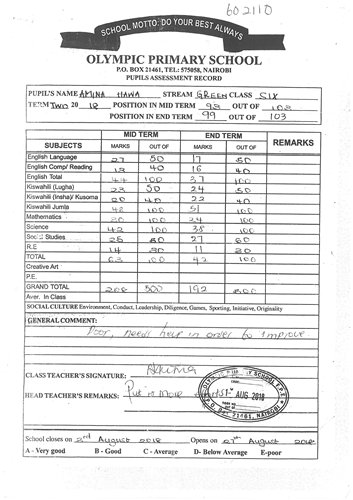 602110
SCHOOL MOTTO: DO YOUR BEST ALWAYS
OLYMPIC PRIMARY SCHOOL
P.O. BOX 21461, TEL: 575058, NAIROBI
PUPILS ASSESSMENT RECORD
PUPIL'S NAME AMINA HAWA STREAM GREEN CLASS SIX
TERM TWO 20 18 POSITION IN MID TERM 98 OUT OF 102
POSITION IN END TERM 99 OUT OF 103
MID TERM END TERM
SUBJECTS MARKS OUT OF MARKS OUT OF REMARKS
English Language 27 50 17 50
English Comp/ Reading 40 16 40
English Total 44 100 37 100
Kiswahili (Lugha) 28 50 24 50
Kiswahili (Insha)/ Kusoma 20 40 22 40
Kiswahili Jumla 48 100 51 100
Mathematics 20 100 24 100
Science 42 100 38 100
Social Studies 60 27 60
R.E 14 30 11 30
TOTAL 100 42 100
Creative Art
P.E.
GRAND TOTAL 500 192 500
Aver. In Class
SOCIAL CULTURE Environment, Conduct, Leadership, Diligence, Games, Sporting, Initiative, Originality
GENERAL COMMENT:
Poor, needs help in order to improve
CLASS TEACHER'S SIGNATURE:
HEAD TEACHER'S REMARKS: Put in more
AUG 2018
P. O. BOX 21461, NAIROBI
School closes on 2nd August 2018 Opens on 27th August 2018
A - Very good B - Good C - Average D- Below Average E-poor